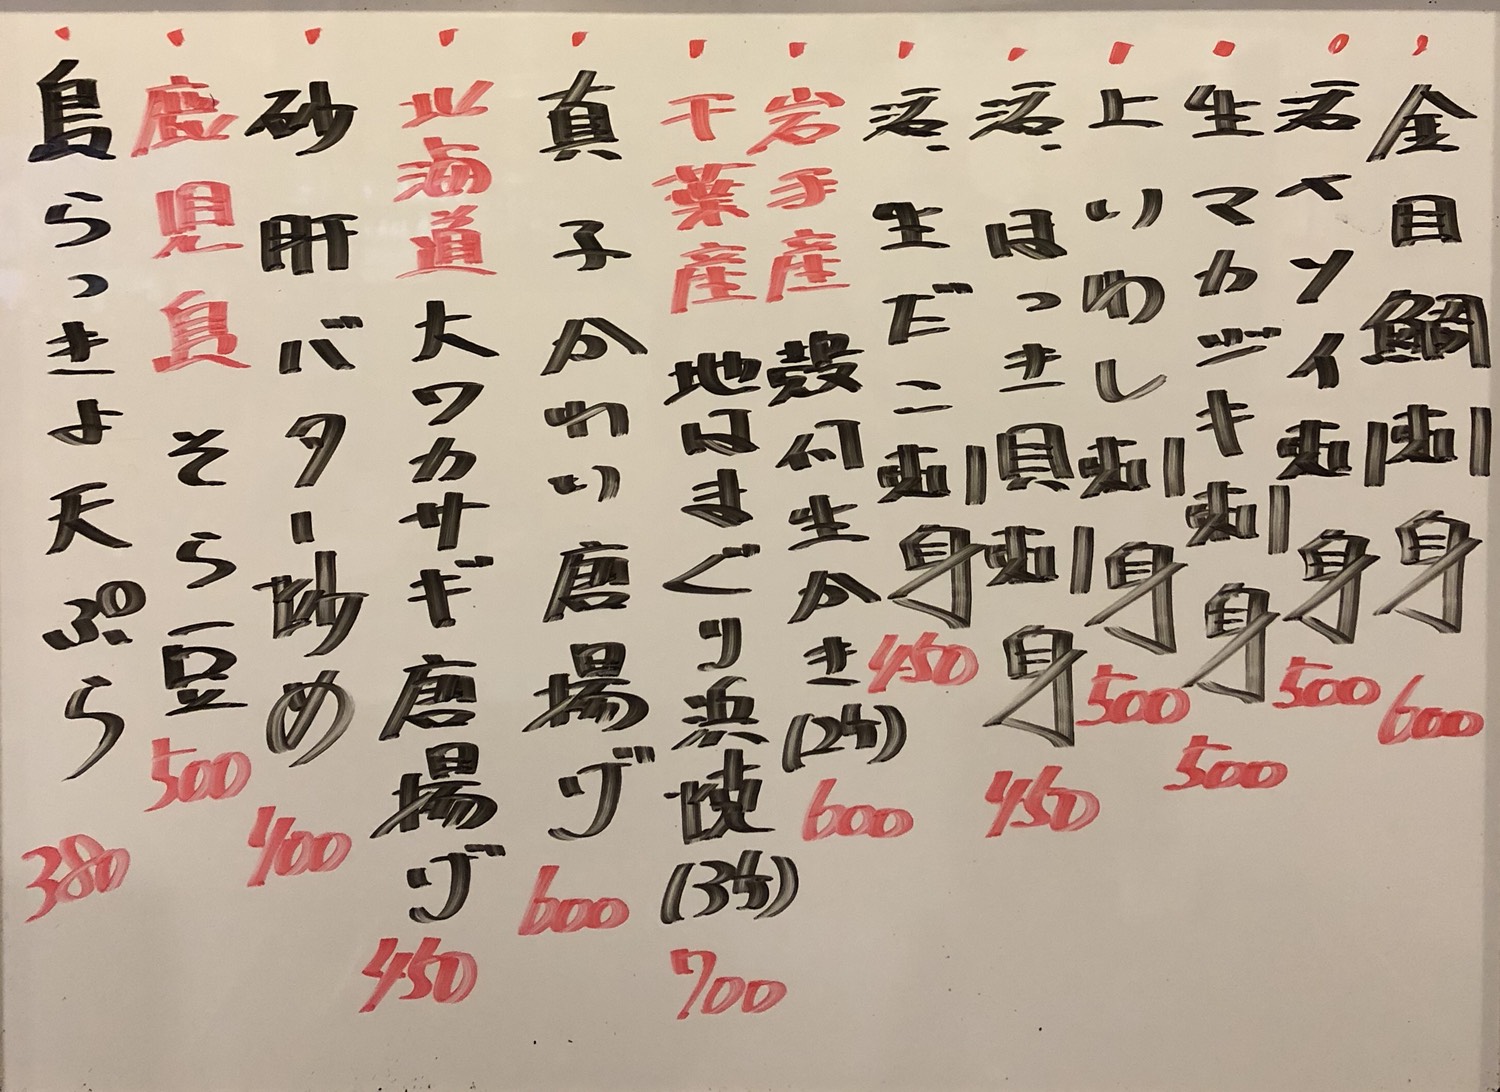 金目鯛刺身 600
活〆ソイ刺身 500
生マカジキ刺身 500
上いわし刺身 500
活ほっき貝刺身 450
活生だこ刺身 450
岩手産 殻付生かき(2ケ) 600
千葉産 地はまぐり浜焼(3ケ) 700
真子かれい唐揚げ 600
北海道 大ワカサギ唐揚げ 450
砂肝バター炒め 400
鹿児島 そら豆 500
島らっきょ天ぷら 380